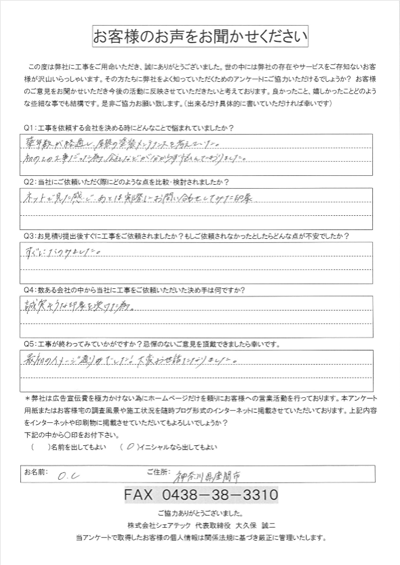 お客様のお声をお聞かせください
この度は弊社に工事をご用命いただき、誠にありがとうございました。世の中には弊社の存在やサービスをご存知ないお客
様が沢山いらっしゃいます。その方たちに弊社をよく知っていただくためのアンケートにご協力いただけるでしょうか？ お客様
のご意見をお聞かせいただき今後の活動に反映させていただきたいと考えております。良かったこと、嬉しかったことどのよう
な些細な事でも結構です。是非ご協力お願い致します。(出来るだけ具体的に書いていただければ幸いです)
Q1:工事を依頼する会社を決める時にどんなことで悩まれていましたか？
築年数が経過し、屋根の塗装メンテナンスを考えていた。
初めての工事だった為
Q2:当社にご依頼いただく際にどのような点を比較・検討されましたか？
ネットで見た感じ、あとは実際にお問い合わせしてみた印象
Q3:お見積り提出後すぐに工事をご依頼されましたか？もしご依頼されなかったとしたらどんな点が不安でしたか？
すぐにたのみました。
Q4:数ある会社の中から当社に工事をご依頼いただいた決め手は何ですか？
誠実そうな印象を受けた為。
Q5:工事が終わってみていかがですか？忌憚のないご意見を頂戴できましたら幸いです。
最初のイメージ通りでした。大変お世話になりました。
＊弊社は広告宣伝費を極力かけない為にホームページだけを頼りにお客様への営業活動を行っております。本アンケート
用紙またはお客様宅の調査風景や施工状況を随時ブログ形式のインターネットに掲載させていただいております。上記内容
をインターネットや印刷物に掲載させていただいてもよろしいでしょうか？
下記の中から〇印をお付下さい。
(　　)名前を出してもよい　(〇)イニシャルなら出してもよい
お名前: O.C　ご住所: 神奈川県座間市
FAX 0438-38-3310
ご協力ありがとうございました。
株式会社シェアテック 代表取締役 大久保 誠二
当アンケートで取得したお客様の個人情報は関係法規に基づき厳正に管理いたします。